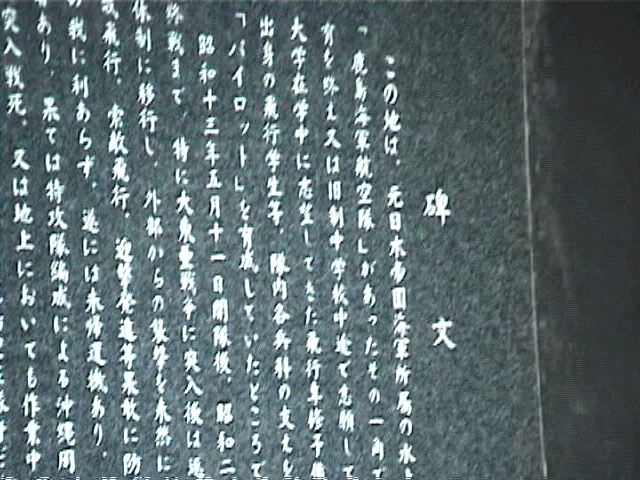 碑文
この地は、元日本帝国海軍所属の水上
「鹿島海軍航空隊」があったその一角で
育を終え又は旧制中学校中途で志願して
大学在学中に志望してきた飛行専修予備
出身の飛行学生等、隊内各兵科の支えを
「パイロット」を育成していたところで
昭和十三年五月十一日開隊後、昭和二
終戦まで、特に大東亜戦争に突入後は
体制に移行し、外部からの襲撃を未然に
飛行、索敵飛行、迎撃発進等果敢に防
戦に利あらず、遂には未帰還機あり、
あり、果ては特攻隊編成による沖縄周
突入戦死、又は地上においても作業中